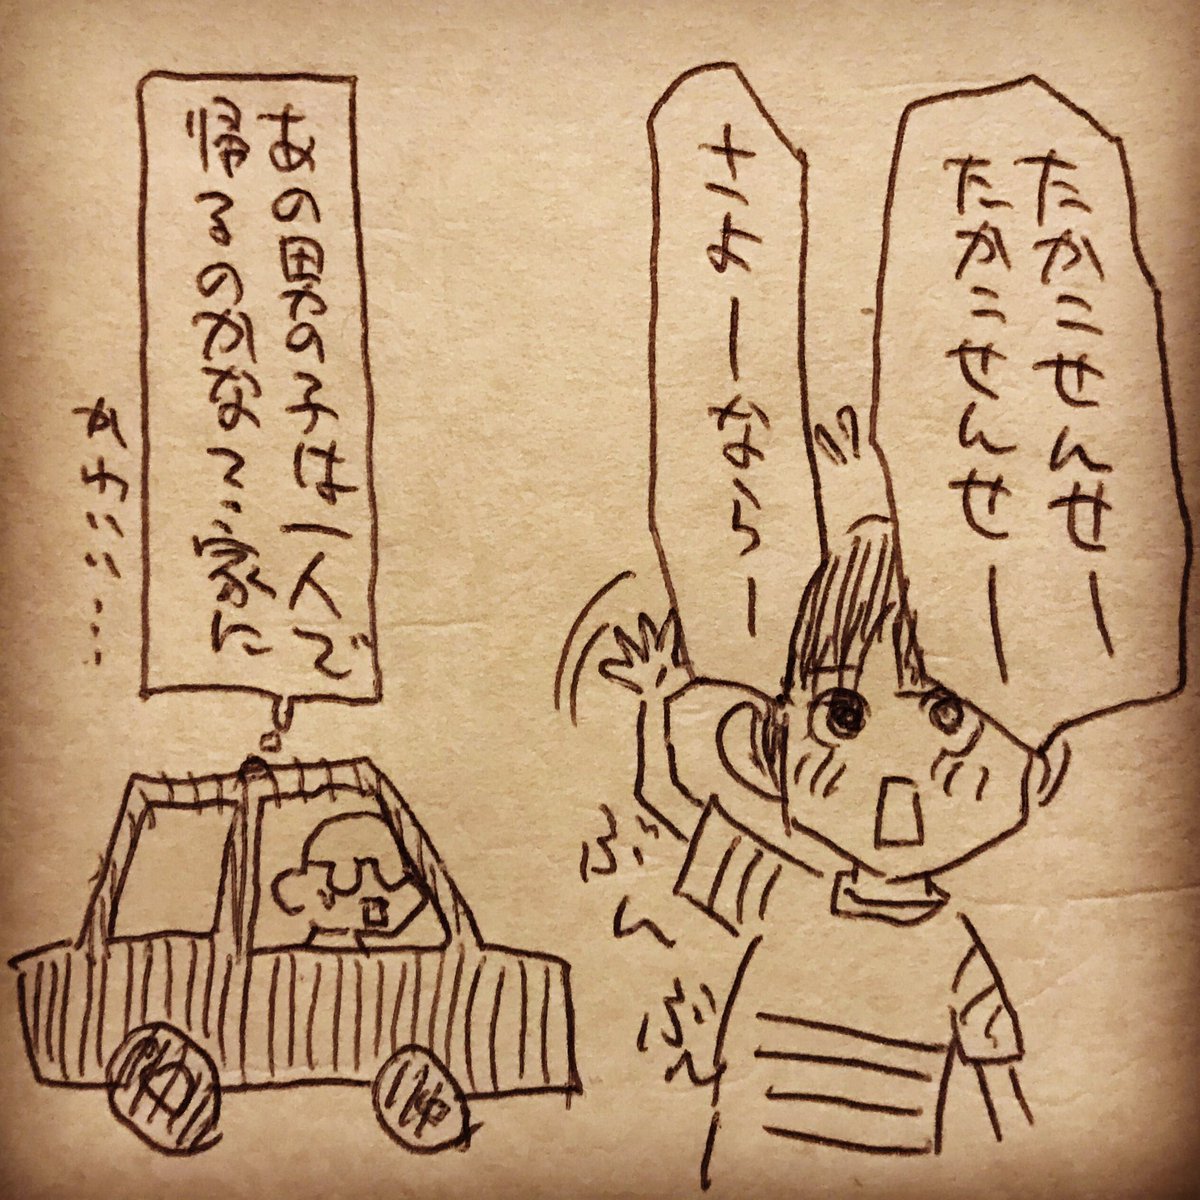 たかこせんせー
たかこせんせー
さよーならー
ぶん
ぶん
あの男の子は一人で
帰るのかなて゛家に
カチ：：…